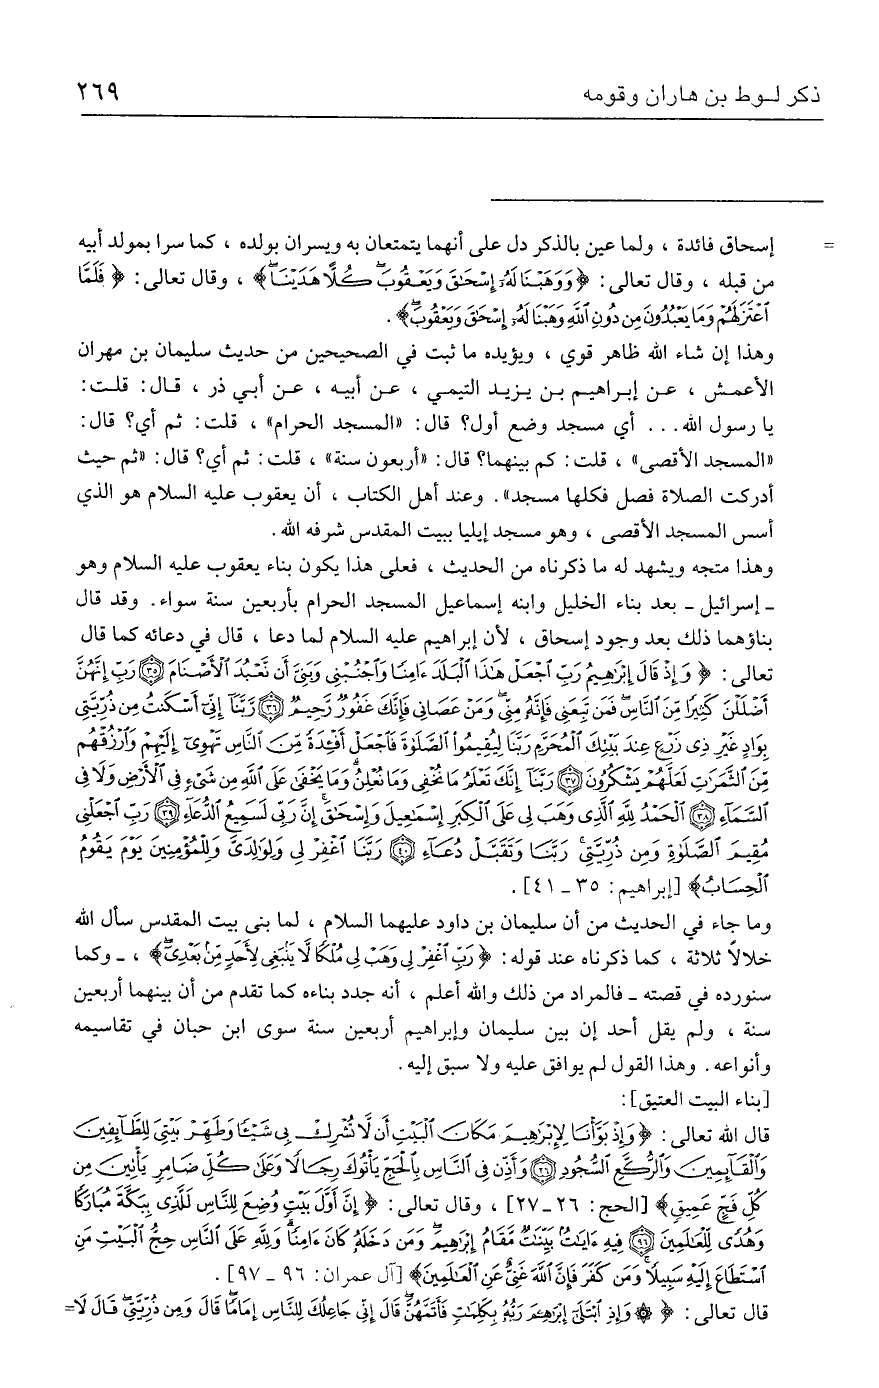 ذكر لـوط بن هاران وقومه ٢٦٩
= إسحاق فائدة ، ولما عين بالذكر دل على أنهما يتمتعان به ويسران بولده ، كما سرا بمولد أبيه
من قبله ، وقال تعالى: ﴿ وَوَهَبْنَا لَهُۥٓ إِسْحَٰقَ وَيَعْقُوبَ ۚ كُلًّا هَدَيْنَا ۚ﴾ ، وقال تعالى: ﴿ فَلَمَّا
ٱعْتَزَلَهُمْ وَمَا يَعْبُدُونَ مِن دُونِ ٱللَّهِ وَهَبْنَا لَهُۥٓ إِسْحَٰقَ وَيَعْقُوبَ ۖ﴾ .
وهذا إن شاء الله ظاهر قوي ، ويؤيده ما ثبت في الصحيحين من حديث سليمان بن مهران
الأعمش ، عن إبراهيم بن يزيد التيمي ، عن أبيه ، عن أبي ذر ، قال: قلت:
يا رسول الله... أي مسجد وضع أول؟ قال: «المسجد الحرام» ، قلت: ثم أي؟ قال:
«المسجد الأقصى» ، قلت: كم بينهما؟ قال: «أربعون سنة» ، قلت: ثم أي؟ قال: «ثم حيث
أدركت الصلاة فصل فكلها مسجد». وعند أهل الكتاب ، أن يعقوب عليه السلام هو الذي
أسس المسجد الأقصى ، وهو مسجد إيليا ببيت المقدس شرفه الله.
وهذا متجه ويشهد له ما ذكرناه من الحديث ، فعلى هذا يكون بناء يعقوب عليه السلام وهو
ـ إسرائيل ـ بعد بناء الخليل وابنه إسماعيل المسجد الحرام بأربعين سنة سواء. وقد قال
بناؤهما ذلك بعد وجود إسحاق ، لأن إبراهيم عليه السلام لما دعا ، قال في دعائه كما قال
تعالى: ﴿ وَإِذْ قَالَ إِبْرَٰهِيمُ رَبِّ ٱجْعَلْ هَٰذَا ٱلْبَلَدَ ءَامِنًا وَٱجْنُبْنِى وَبَنِىَّ أَن نَّعْبُدَ ٱلْأَصْنَامَ ﴿٣٥﴾ رَبِّ إِنَّهُنَّ
أَضْلَلْنَ كَثِيرًا مِّنَ ٱلنَّاسِ ۖ فَمَن تَبِعَنِى فَإِنَّهُۥ مِنِّى ۖ وَمَنْ عَصَانِى فَإِنَّكَ غَفُورٌ رَّحِيمٌ ﴿٣٦﴾ رَّبَّنَآ إِنِّىٓ أَسْكَنتُ مِن ذُرِّيَّتِى
بِوَادٍ غَيْرِ ذِى زَرْعٍ عِندَ بَيْتِكَ ٱلْمُحَرَّمِ رَبَّنَا لِيُقِيمُوا۟ ٱلصَّلَوٰةَ فَٱجْعَلْ أَفْـِٔدَةً مِّنَ ٱلنَّاسِ تَهْوِىٓ إِلَيْهِمْ وَٱرْزُقْهُم
مِّنَ ٱلثَّمَرَٰتِ لَعَلَّهُمْ يَشْكُرُونَ ﴿٣٧﴾ رَبَّنَآ إِنَّكَ تَعْلَمُ مَا نُخْفِى وَمَا نُعْلِنُ ۗ وَمَا يَخْفَىٰ عَلَى ٱللَّهِ مِن شَىْءٍ فِى ٱلْأَرْضِ وَلَا فِى
ٱلسَّمَآءِ ﴿٣٨﴾ ٱلْحَمْدُ لِلَّهِ ٱلَّذِى وَهَبَ لِى عَلَى ٱلْكِبَرِ إِسْمَٰعِيلَ وَإِسْحَٰقَ ۚ إِنَّ رَبِّى لَسَمِيعُ ٱلدُّعَآءِ ﴿٣٩﴾ رَبِّ ٱجْعَلْنِى
مُقِيمَ ٱلصَّلَوٰةِ وَمِن ذُرِّيَّتِى ۚ رَبَّنَا وَتَقَبَّلْ دُعَآءِ ﴿٤٠﴾ رَبَّنَا ٱغْفِرْ لِى وَلِوَٰلِدَىَّ وَلِلْمُؤْمِنِينَ يَوْمَ يَقُومُ
ٱلْحِسَابُ﴾ [إبراهيم: ٣٥ ـ ٤١] .
وما جاء في الحديث من أن سليمان بن داود عليهما السلام ، لما بنى بيت المقدس سأل الله
خلالاً ثلاثة ، كما ذكرناه عند قوله: ﴿ رَبِّ ٱغْفِرْ لِى وَهَبْ لِى مُلْكًا لَّا يَنۢبَغِى لِأَحَدٍ مِّنۢ بَعْدِىٓ ۖ﴾ ، ـ وكما
سنورده في قصته ـ فالمراد من ذلك والله أعلم ، أنه جدد بناءه كما تقدم من أن بينهما أربعين
سنة ، ولم يقل أحد إن بين سليمان وإبراهيم أربعين سنة سوى ابن حبان في تقاسيمه
وأنواعه. وهذا القول لم يوافق عليه ولا سبق إليه.
[بناء البيت العتيق]:
قال الله تعالى: ﴿ وَإِذْ بَوَّأْنَا لِإِبْرَٰهِيمَ مَكَانَ ٱلْبَيْتِ أَن لَّا تُشْرِكْ بِى شَيْـًٔا وَطَهِّرْ بَيْتِىَ لِلطَّآئِفِينَ
وَٱلْقَآئِمِينَ وَٱلرُّكَّعِ ٱلسُّجُودِ ﴿٢٦﴾ وَأَذِّن فِى ٱلنَّاسِ بِٱلْحَجِّ يَأْتُوكَ رِجَالًا وَعَلَىٰ كُلِّ ضَامِرٍ يَأْتِينَ مِن
كُلِّ فَجٍّ عَمِيقٍ﴾ [الحج: ٢٦ ـ ٢٧] ، وقال تعالى: ﴿ إِنَّ أَوَّلَ بَيْتٍ وُضِعَ لِلنَّاسِ لَلَّذِى بِبَكَّةَ مُبَارَكًا
وَهُدًى لِّلْعَٰلَمِينَ ﴿٩٦﴾ فِيهِ ءَايَٰتٌۢ بَيِّنَٰتٌ مَّقَامُ إِبْرَٰهِيمَ ۖ وَمَن دَخَلَهُۥ كَانَ ءَامِنًا ۗ وَلِلَّهِ عَلَى ٱلنَّاسِ حِجُّ ٱلْبَيْتِ مَنِ
ٱسْتَطَاعَ إِلَيْهِ سَبِيلًا ۚ وَمَن كَفَرَ فَإِنَّ ٱللَّهَ غَنِىٌّ عَنِ ٱلْعَٰلَمِينَ﴾ [آل عمران: ٩٦ ـ ٩٧] .
قال تعالى: ﴿ ۞ وَإِذِ ٱبْتَلَىٰٓ إِبْرَٰهِـۧمَ رَبُّهُۥ بِكَلِمَٰتٍ فَأَتَمَّهُنَّ ۖ قَالَ إِنِّى جَاعِلُكَ لِلنَّاسِ إِمَامًا ۖ قَالَ وَمِن ذُرِّيَّتِى ۖ قَالَ لَا =